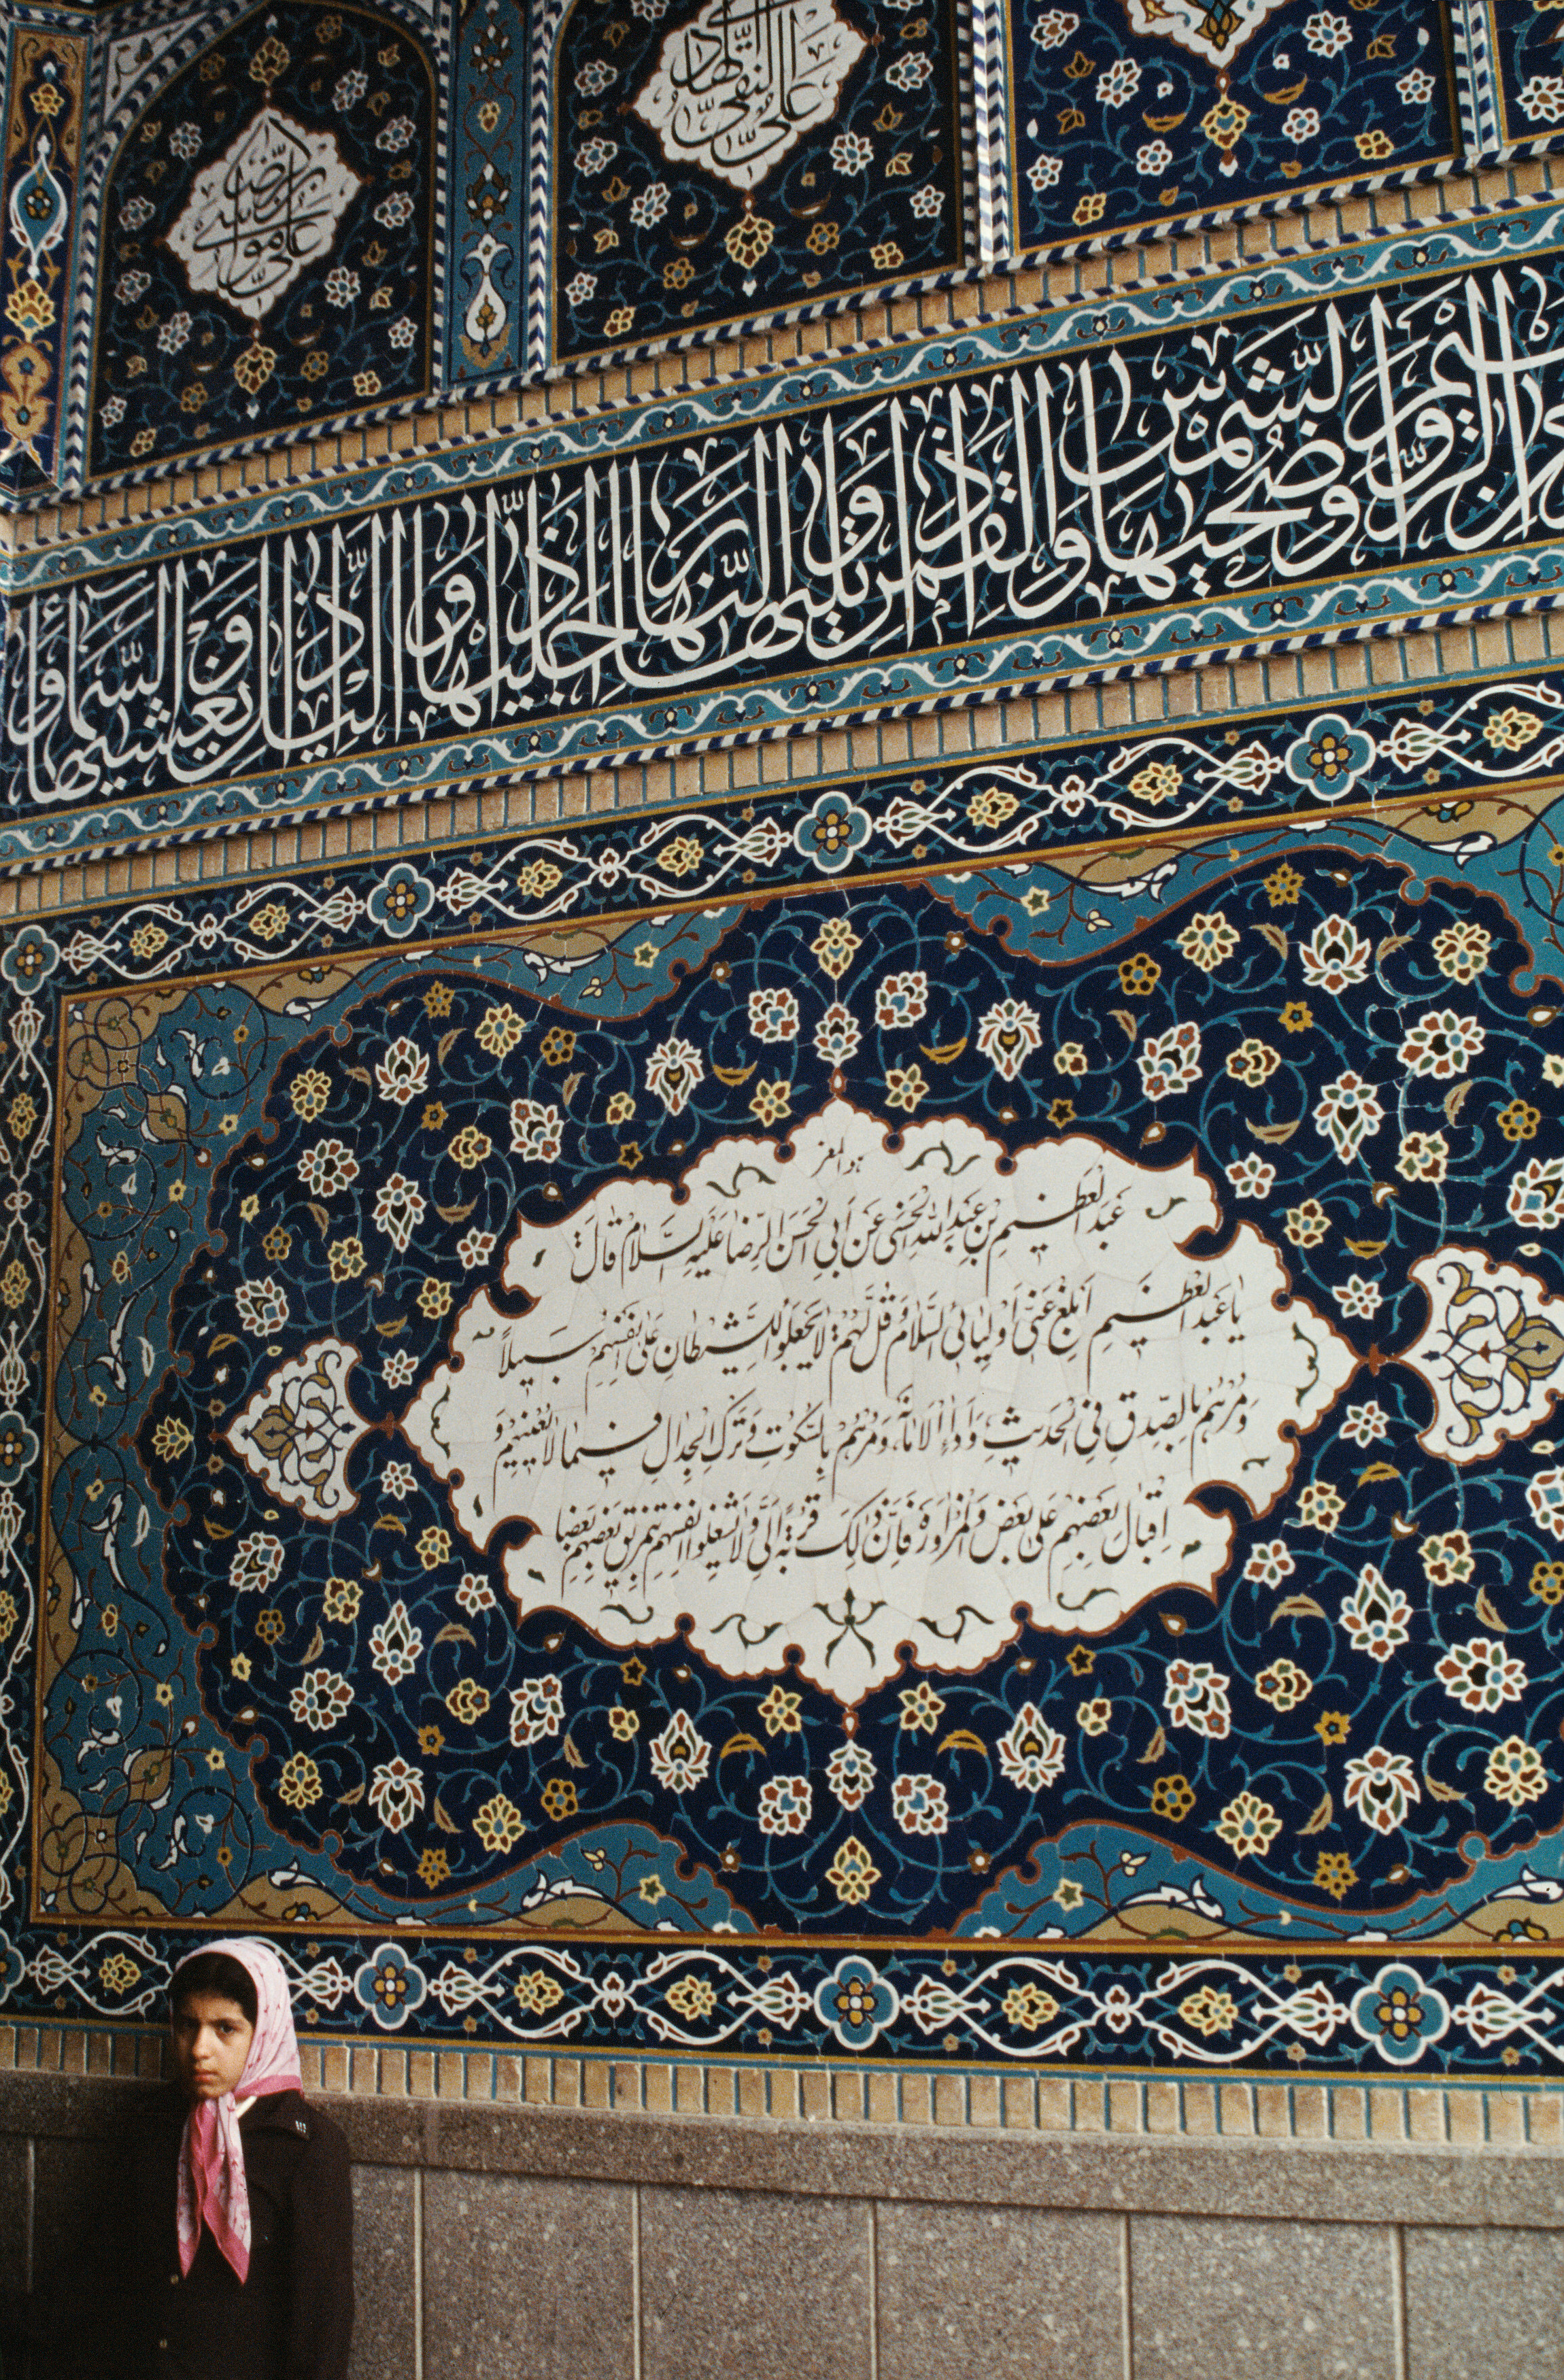 علی بن موسی الرضا
علی النقی الهادی
الرحیم والشمس وضحیها والقمر اذا تلیها والنهار اذا جلیها واللیل اذا یغشیها والسماء و
عَبْدُ الْعَظیمِ بْنِ عَبْدِ اللّٰهِ الْحَسَنی عَنْ اَبِی الْحَسَنِ الرِّضا عَلَیْهِ السَّلامُ قالَ
یا عَبْدَ الْعَظیمِ اَبْلِغْ عَنّی اَوْلِیائِیَ السَّلامَ وَ قُلْ لَهُمْ لا یَجْعَلُوا لِلشَّیْطانِ عَلی اَنْفُسِهِمْ سَبیلاً
وَ مُرْهُمْ بِالصِّدْقِ فِی الْحَدیثِ وَ اَداءِ الْاَمانَةِ وَ مُرْهُمْ بِالسُّکُوتِ وَ تَرْکِ الْجِدالِ فیما لا یَعْنیهِمْ وَ
اِقْبالِ بَعْضِهِمْ عَلی بَعْضٍ وَ الْمُزاوَرَةِ فَاِنَّ ذٰلِکَ قُرْبَةٌ اِلَیَّ وَ لا یَشْغِلُوا اَنْفُسَهُمْ بِتَمْزیقِ بَعْضِهِمْ بَعْضًا